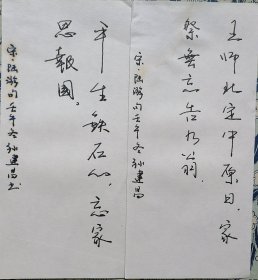 王师北定中原日．家
祭無忘告乃翁．
宋·陆游句壬午冬孙建昌
平生鉄石心，忘家
思報國。
宋·陆游句壬午冬孙建昌书